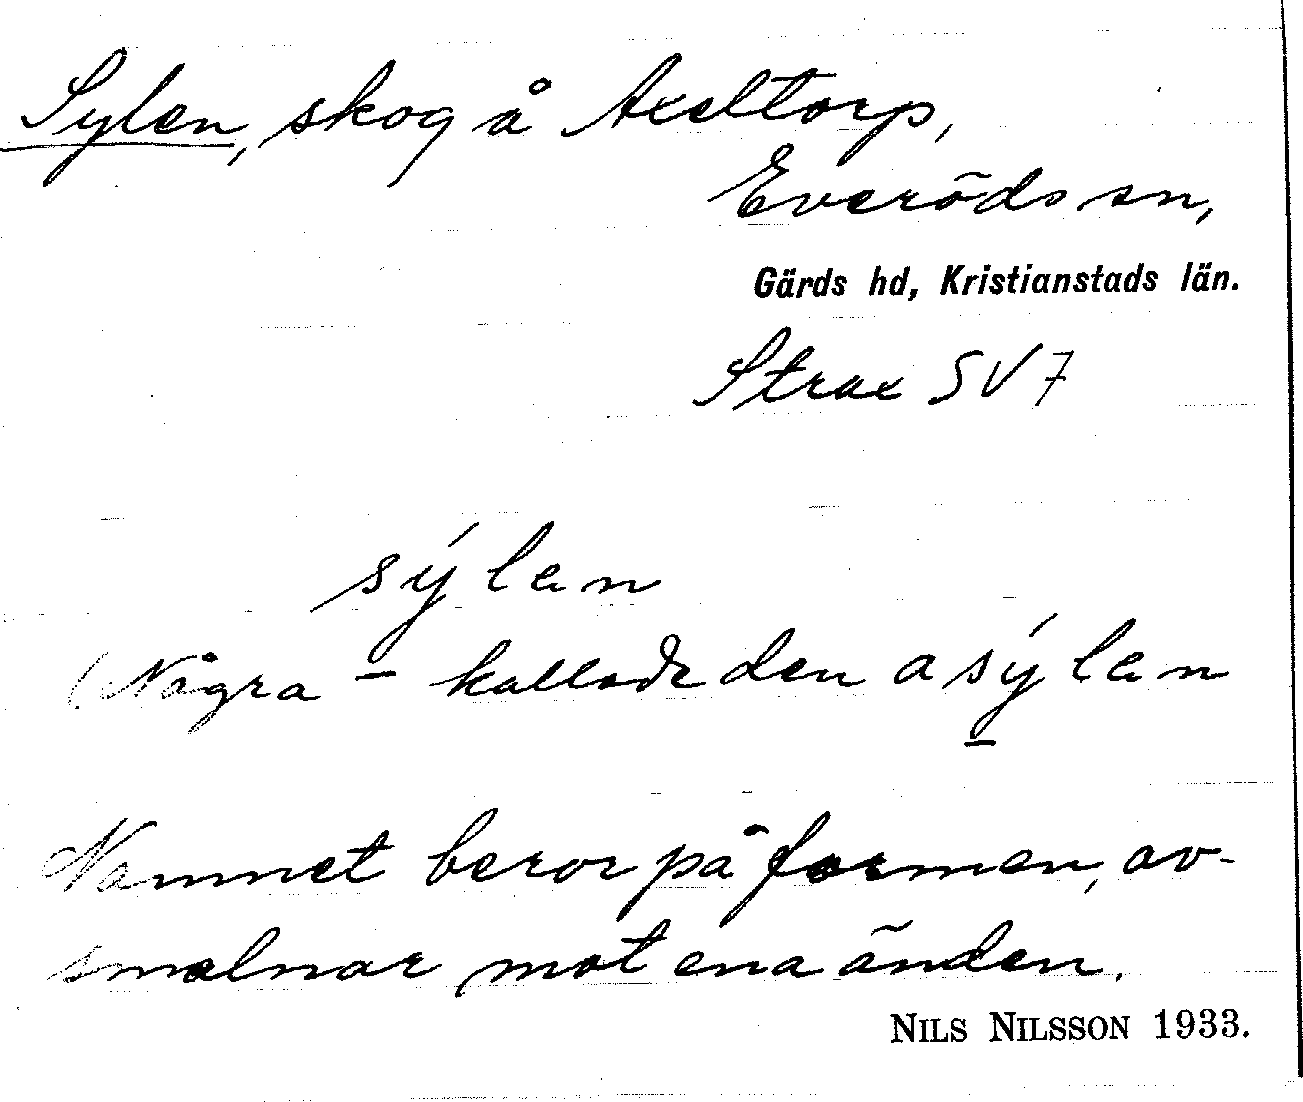 Sylen, skog å Axeltorp,
Everöds sn,
Gärds hd, Kristianstads län.
Strax SV 7
sýlen
(Några – kallade den asýlen
Namnet beror på formen, av-
smalnar mot ena änden.
NILS NILSSON 1933.